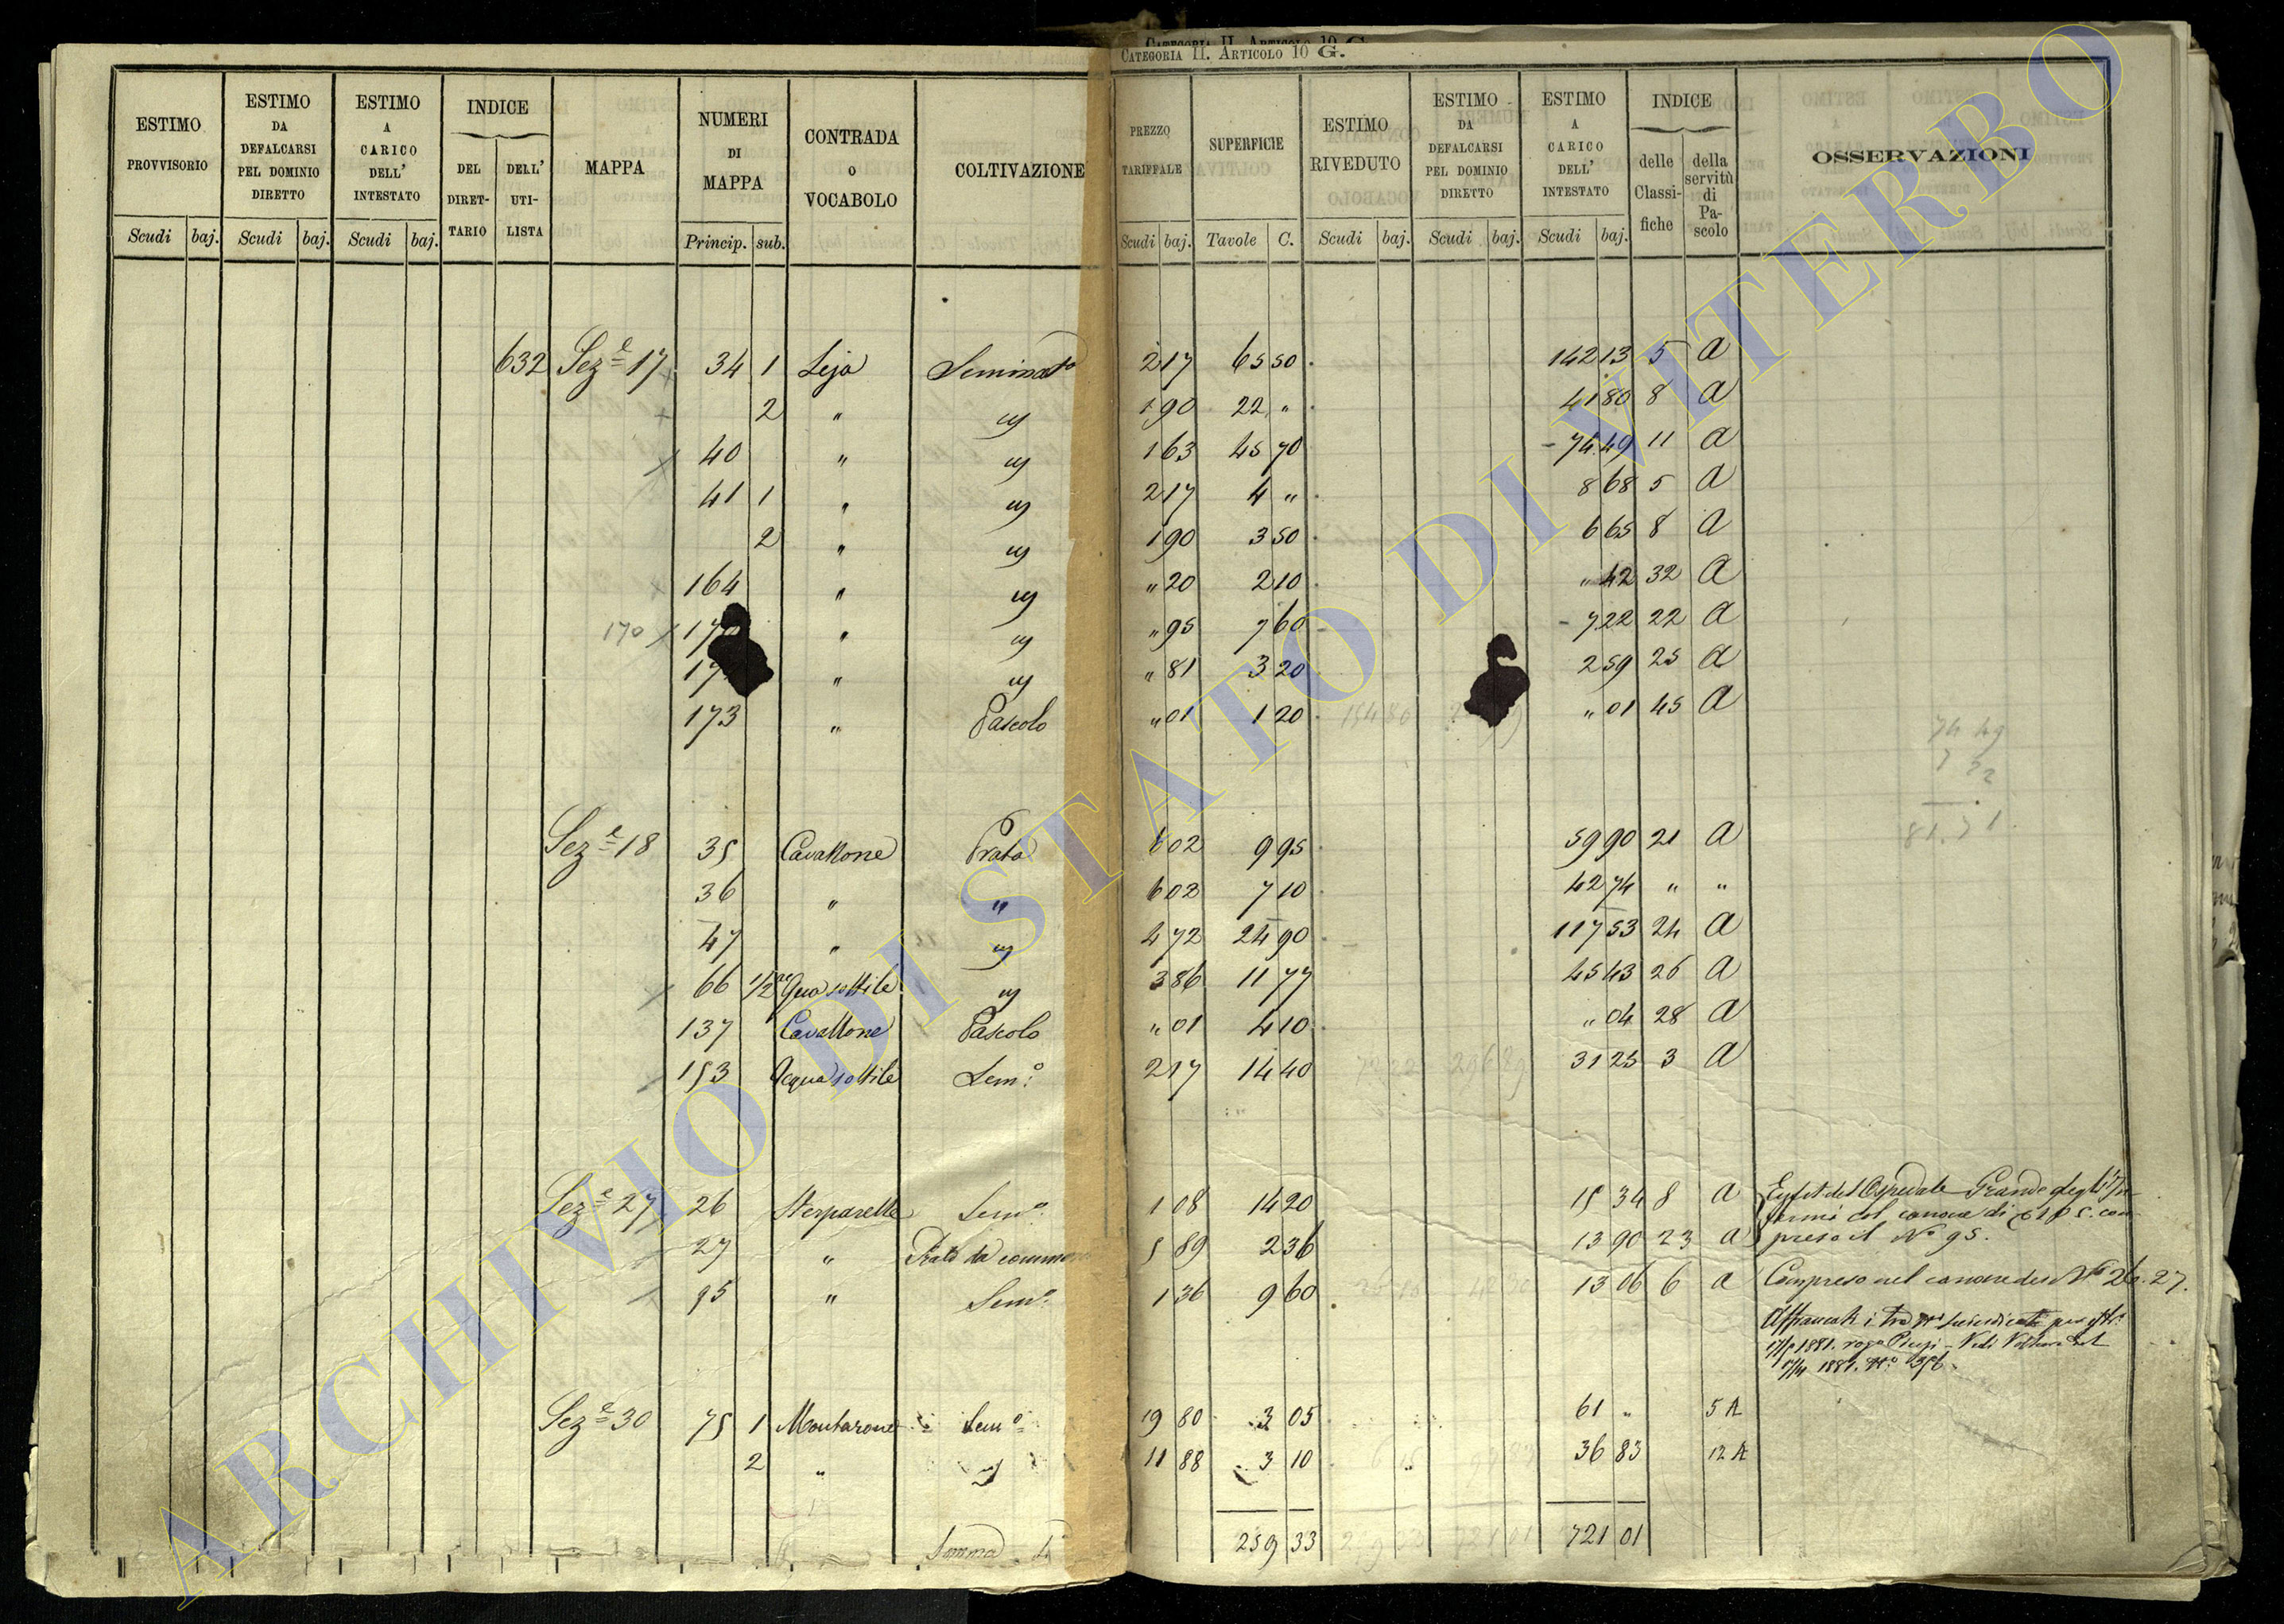 CATEGORIA II. ARTICOLO 10 G.
CATEGORIA II. ARTICOLO 10 G.
ESTIMO PROVVISORIO Scudi baj.
ESTIMO DA DEFALCARSI PEL DOMINIO DIRETTO Scudi baj.
ESTIMO A CARICO DELL' INTESTATO Scudi baj.
INDICE DEL DIRET- TARIO DELL' UTI- LISTA
MAPPA
NUMERI DI MAPPA Princip. sub.
CONTRADA O VOCABOLO
COLTIVAZIONE
PREZZO TARIFFALE Scudi baj.
SUPERFICIE Tavole C.
ESTIMO RIVEDUTO Scudi baj.
ESTIMO DA DEFALCARSI PEL DOMINIO DIRETTO Scudi baj.
ESTIMO A CARICO DELL' INTESTATO Scudi baj.
INDICE delle Classi- fiche della servitù di Pa- scolo
OSSERVAZIONI
632 Sez.e 17 34 1 Leja Seminato 2 17 65 50 142 13 5 A
2 " " 1 90 22 " 41 80 8 A
40 " " 1 63 45 70 74 49 11 A
41 1 " " 2 17 4 " 8 68 5 A
2 " " 1 90 3 50 6 65 8 A
164 " " " 20 2 10 " 42 32 A
170 " " " 95 7 60 7 22 22 A
" " " 81 3 20 2 59 25 A
173 " Pascolo " 01 1 20 " 01 45 A
74 49
81.71
Sez.e 18 35 Cavallone Prato 6 02 9 95 59 90 21 A
36 " " 6 02 7 10 42 74 " "
47 " " 4 72 24 90 117 53 24 A
66 1/2 Qua sottile " 3 86 11 77 45 43 26 A
137 Cavallone Pascolo " 01 4 10 " 04 28 A
153 Acqua sottile Sem.o 2 17 14 40 31 25 3 A
Sez.e 27 26 Sterparelle Sem.o 1 08 14 20 15 34 8 A Enfit. del Ospedale Grande degl'In-
fermi col canone di com-
27 " Prato da 5 89 2 36 13 90 23 A preso il No 95.
95 " Sem.o 1 36 9 60 13 06 6 A Compreso nel canone dei No 26.27.
Affrancati i tre
1881. rogo Vedi Voltura del
1881. No
Sez.e 30 75 1 Montarone Sem.o 19 80 3 05 61 " 5 A
2 " " 11 88 3 10 36 83 12 A
Somma 259 33 721 01
ARCHIVIO DI STATO DI VITERBO